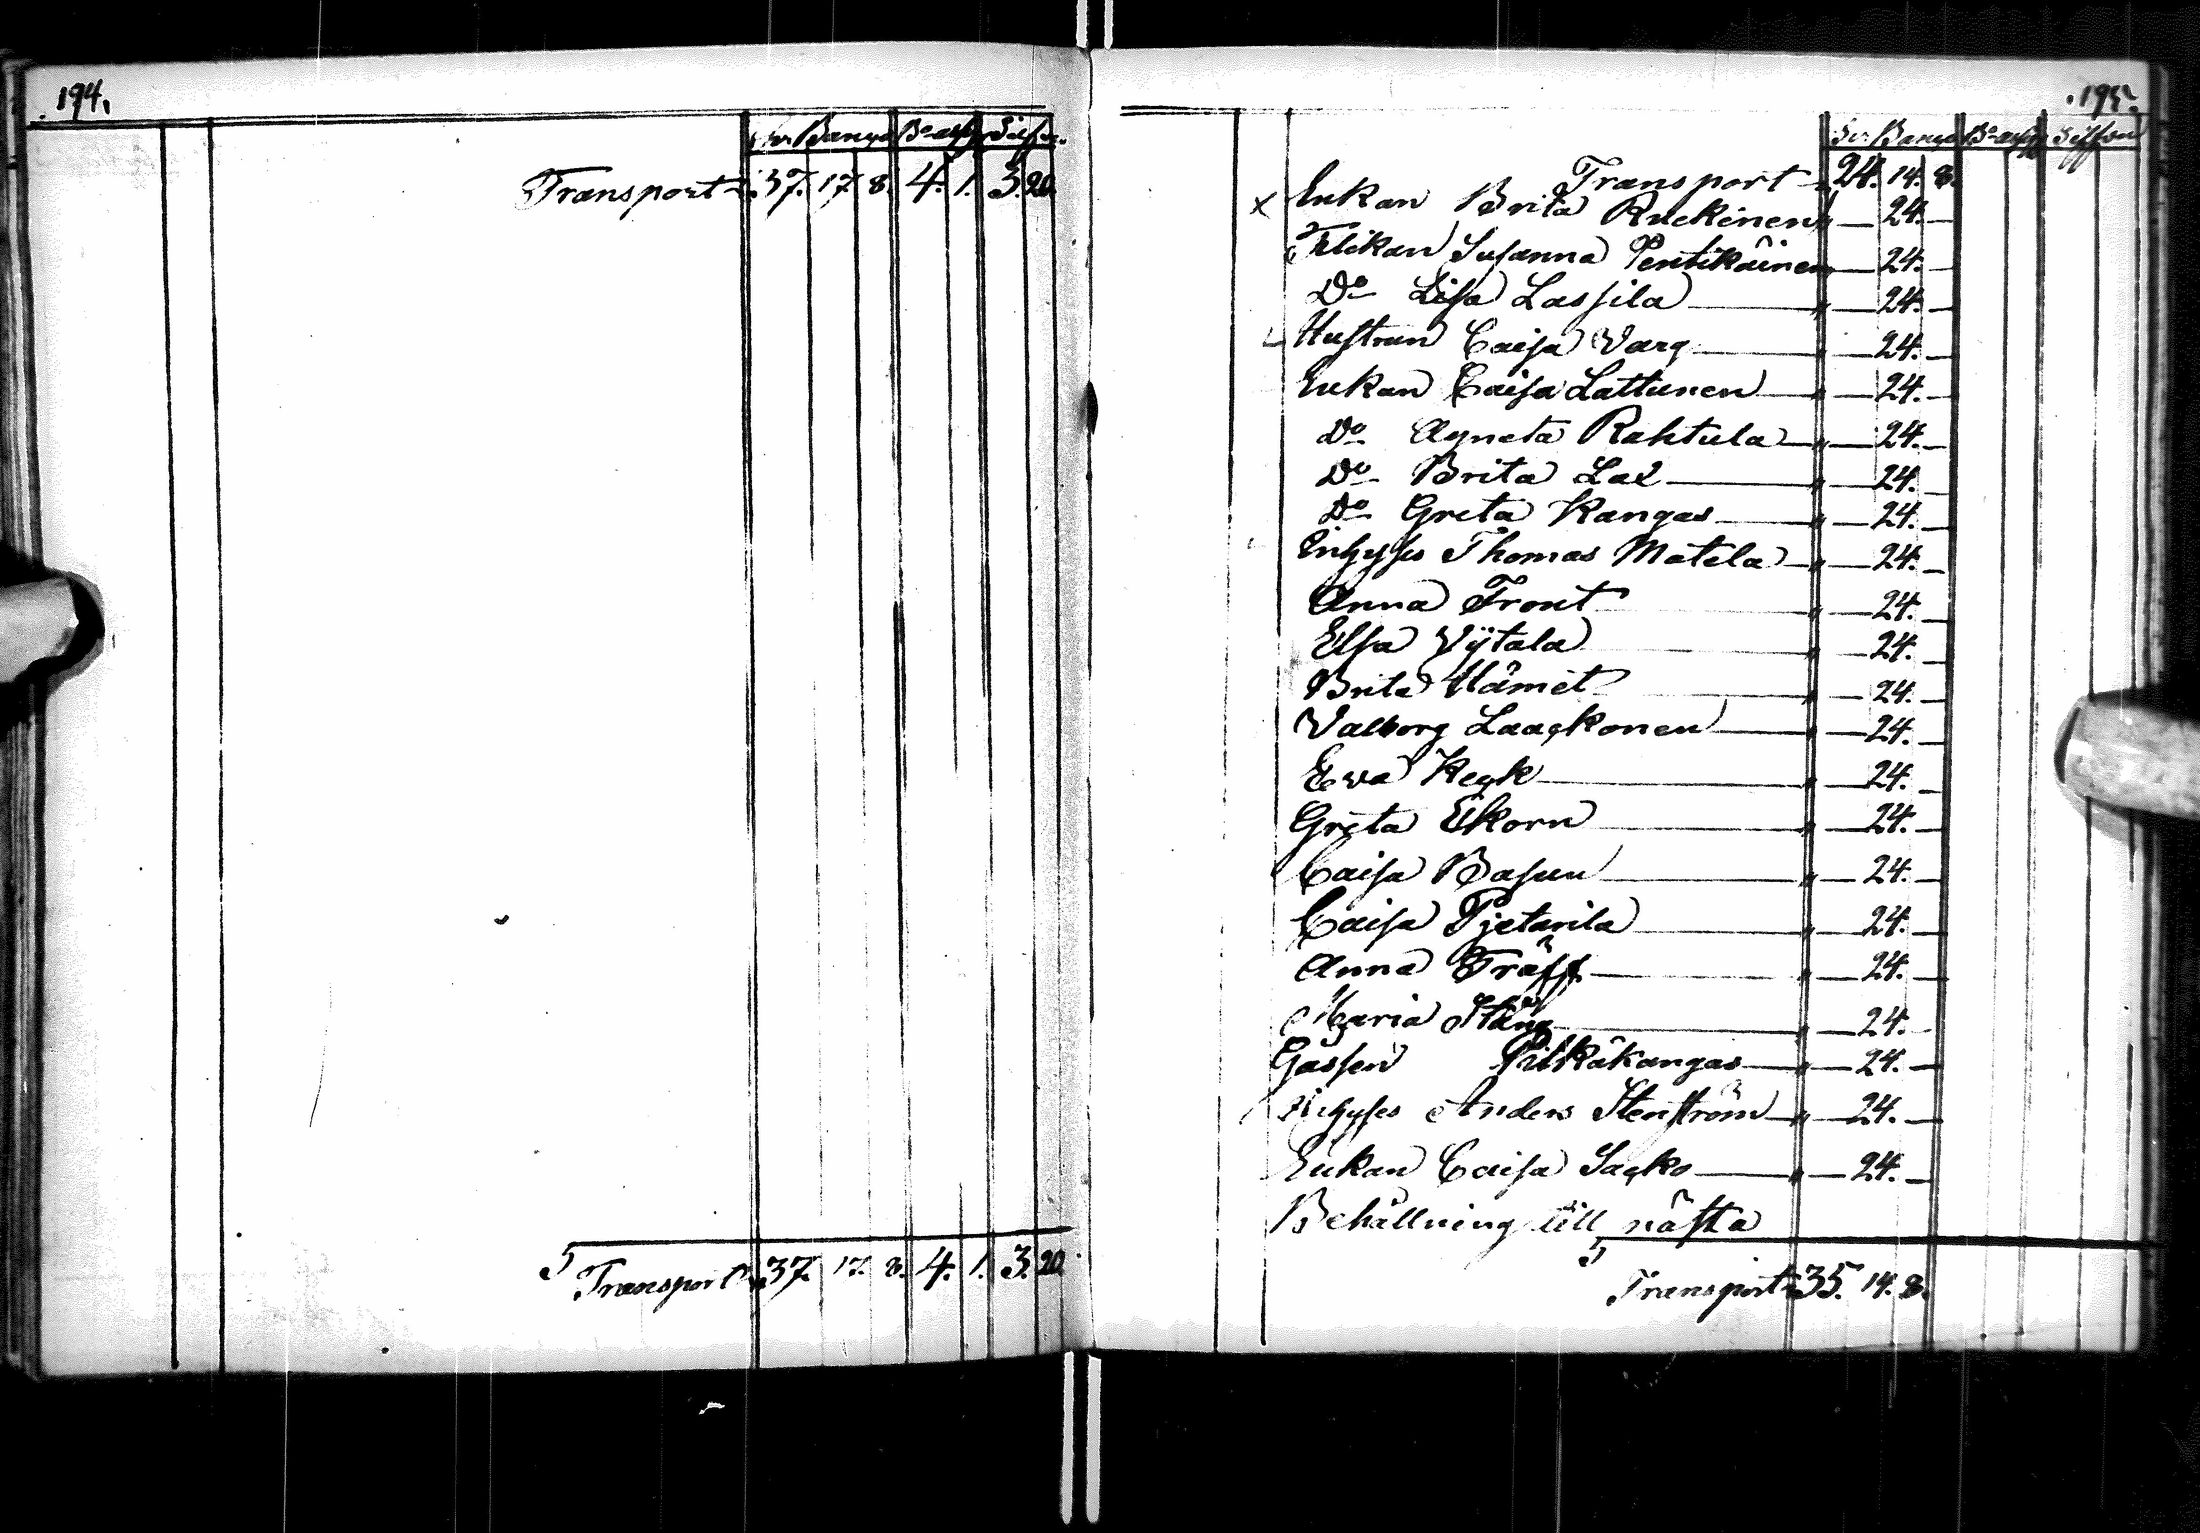 194.
Sv. Banco B:o assg. Silfver
Transport 37. 17. 8. 4. 1. 3. 20.
Transport 37. 17. 8. 4. 1. 3. 20.
195.
Sv. Banco B:o assg. Silfver
Transport 24. 14. 8.
x Enkan Brita Ruckinen " — 24. —
Flickan Susanna Pentikäinen — 24. —
D:o Lisa Lassila " — 24. —
Hustrun Caisa Varg " — 24. —
Enkan Caisa Lattunen " — 24. —
D:o Agneta Rahtula " — 24. —
D:o Brita Lax " — 24. —
D:o Greta Kangas " — 24. —
Inhyses Thomas Matela " — 24. —
Anna Front " — 24. —
Elsa Vÿtala " — 24. —
Brita Hämet " — 24. —
Valborg Laackonen " — 24. —
Eva Keyk " — 24. —
Greta Ekorn " — 24. —
Caisa Basun " — 24. —
Caisa Pjetarila " — 24. —
Anna Träff " — 24. —
Maria Stång " — 24. —
Gossen Pitkäkangas " — 24. —
Inhyses Anders Stenström " — 24. —
Enkan Caisa Sacko " — 24. —
Behållning till nästa
Transport 35. 14. 8.